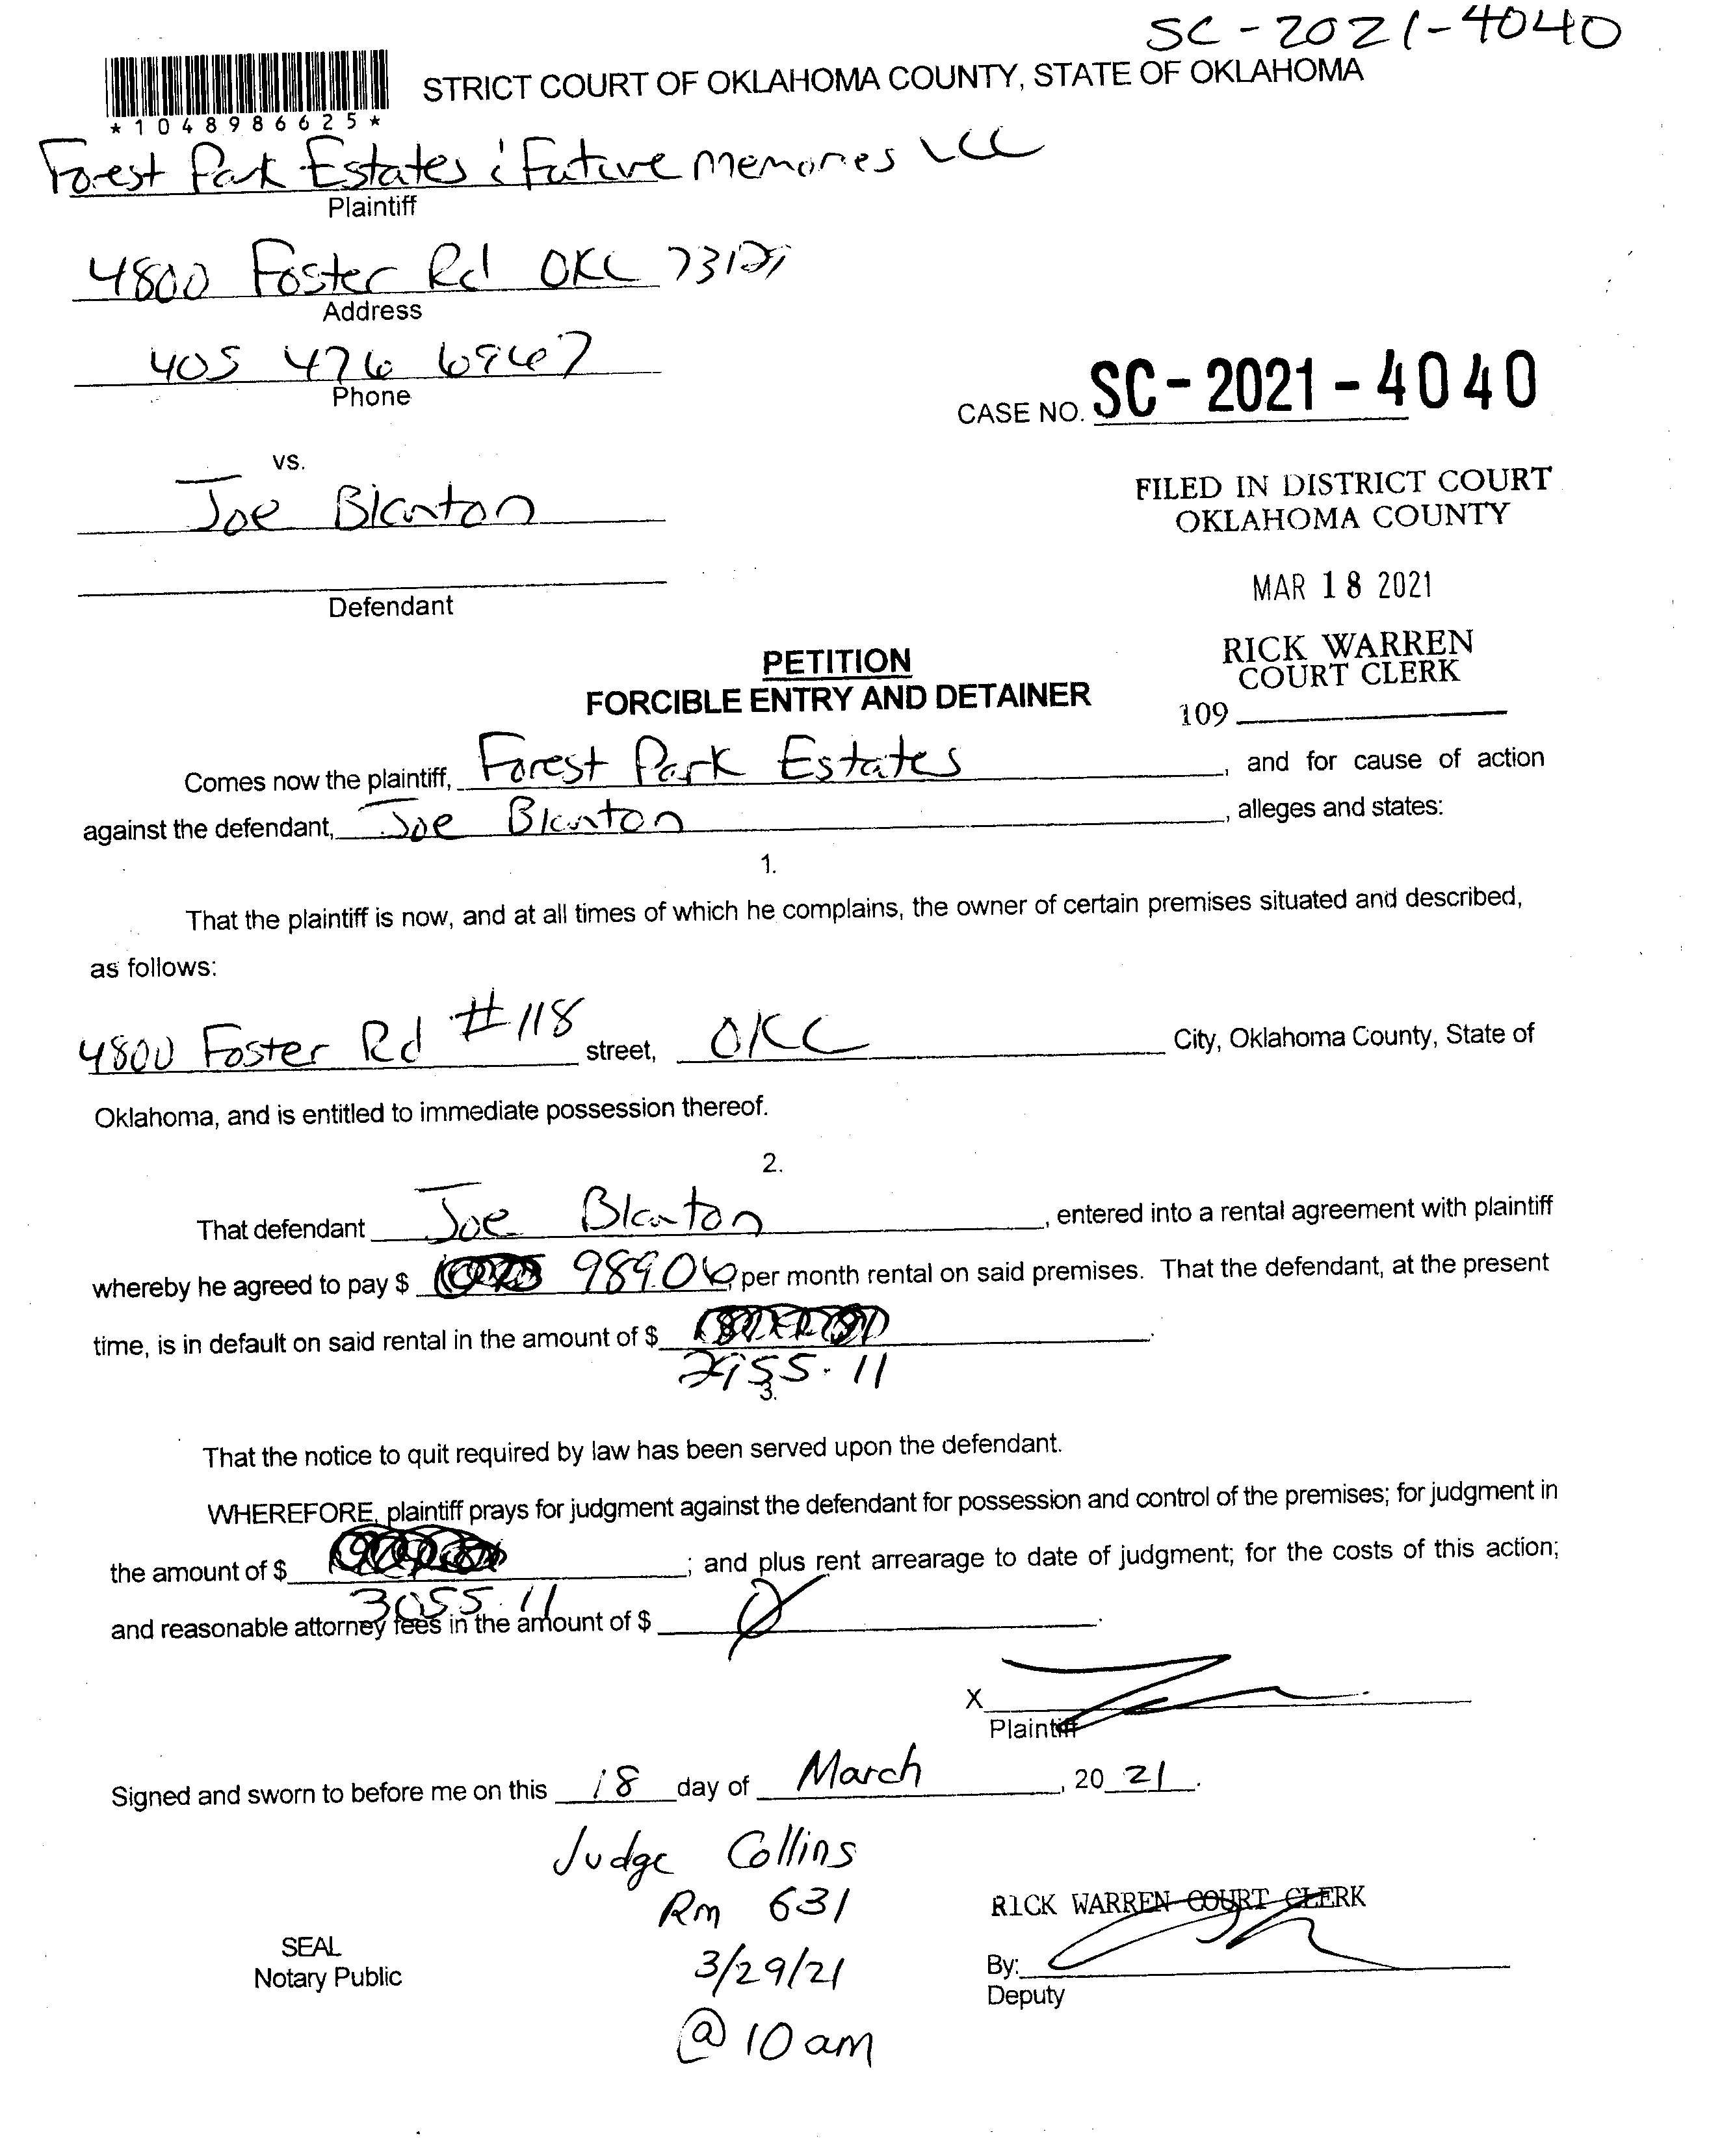 SC-2021-4040
STRICT COURT OF OKLAHOMA COUNTY, STATE OF OKLAHOMA
*1048986625*
Forest Park Estates ; Future Memories LLC
Plaintiff
4800 Foster Rd OKC
Address
405 476 6967
Phone
CASE NO. SC-2021-4040
vs.
Joe Blanton
FILED IN DISTRICT COURT
OKLAHOMA COUNTY
MAR 18 2021
Defendant
RICK WARREN
COURT CLERK
109
PETITION
FORCIBLE ENTRY AND DETAINER
Comes now the plaintiff, Forest Park Estates, and for cause of action
against the defendant, Joe Blanton, alleges and states:
1.
That the plaintiff is now, and at all times of which he complains, the owner of certain premises situated and described,
as follows:
4800 Foster Rd #118 street, OKC City, Oklahoma County, State of
Oklahoma, and is entitled to immediate possession thereof.
2.
That defendant Joe Blanton, entered into a rental agreement with plaintiff
whereby he agreed to pay $ 989.06 per month rental on said premises. That the defendant, at the present
time, is in default on said rental in the amount of $
2955.11
3.
That the notice to quit required by law has been served upon the defendant.
WHEREFORE, plaintiff prays for judgment against the defendant for possession and control of the premises; for judgment in
the amount of $ ; and plus rent arrearage to date of judgment; for the costs of this action;
3055.11
and reasonable attorney fees in the amount of $ Ø.
X
Plaintiff
Signed and sworn to before me on this 18 day of March, 2021.
Judge Collins
Rm 631
3/29/21
@ 10 am
RICK WARREN COURT CLERK
SEAL
Notary Public
By:
Deputy